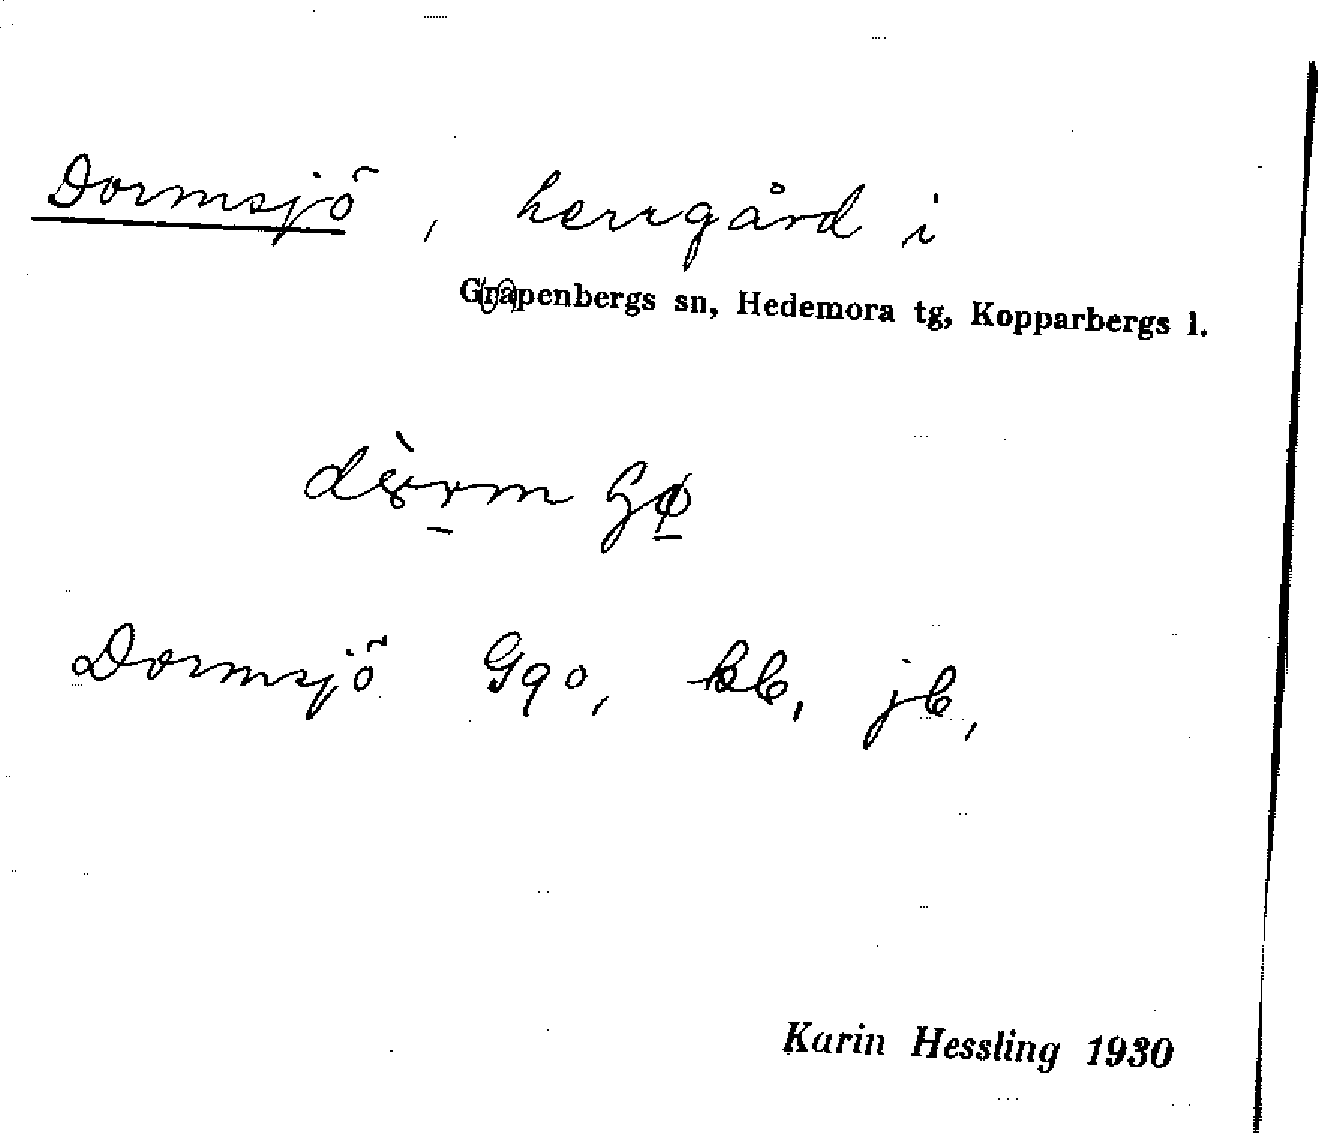 Dormsjö, herrgård i
Grapenbergs sn, Hedemora tg, Kopparbergs l.
Dormsjö Gqo, kb, jb,
Karin Hessling 1930